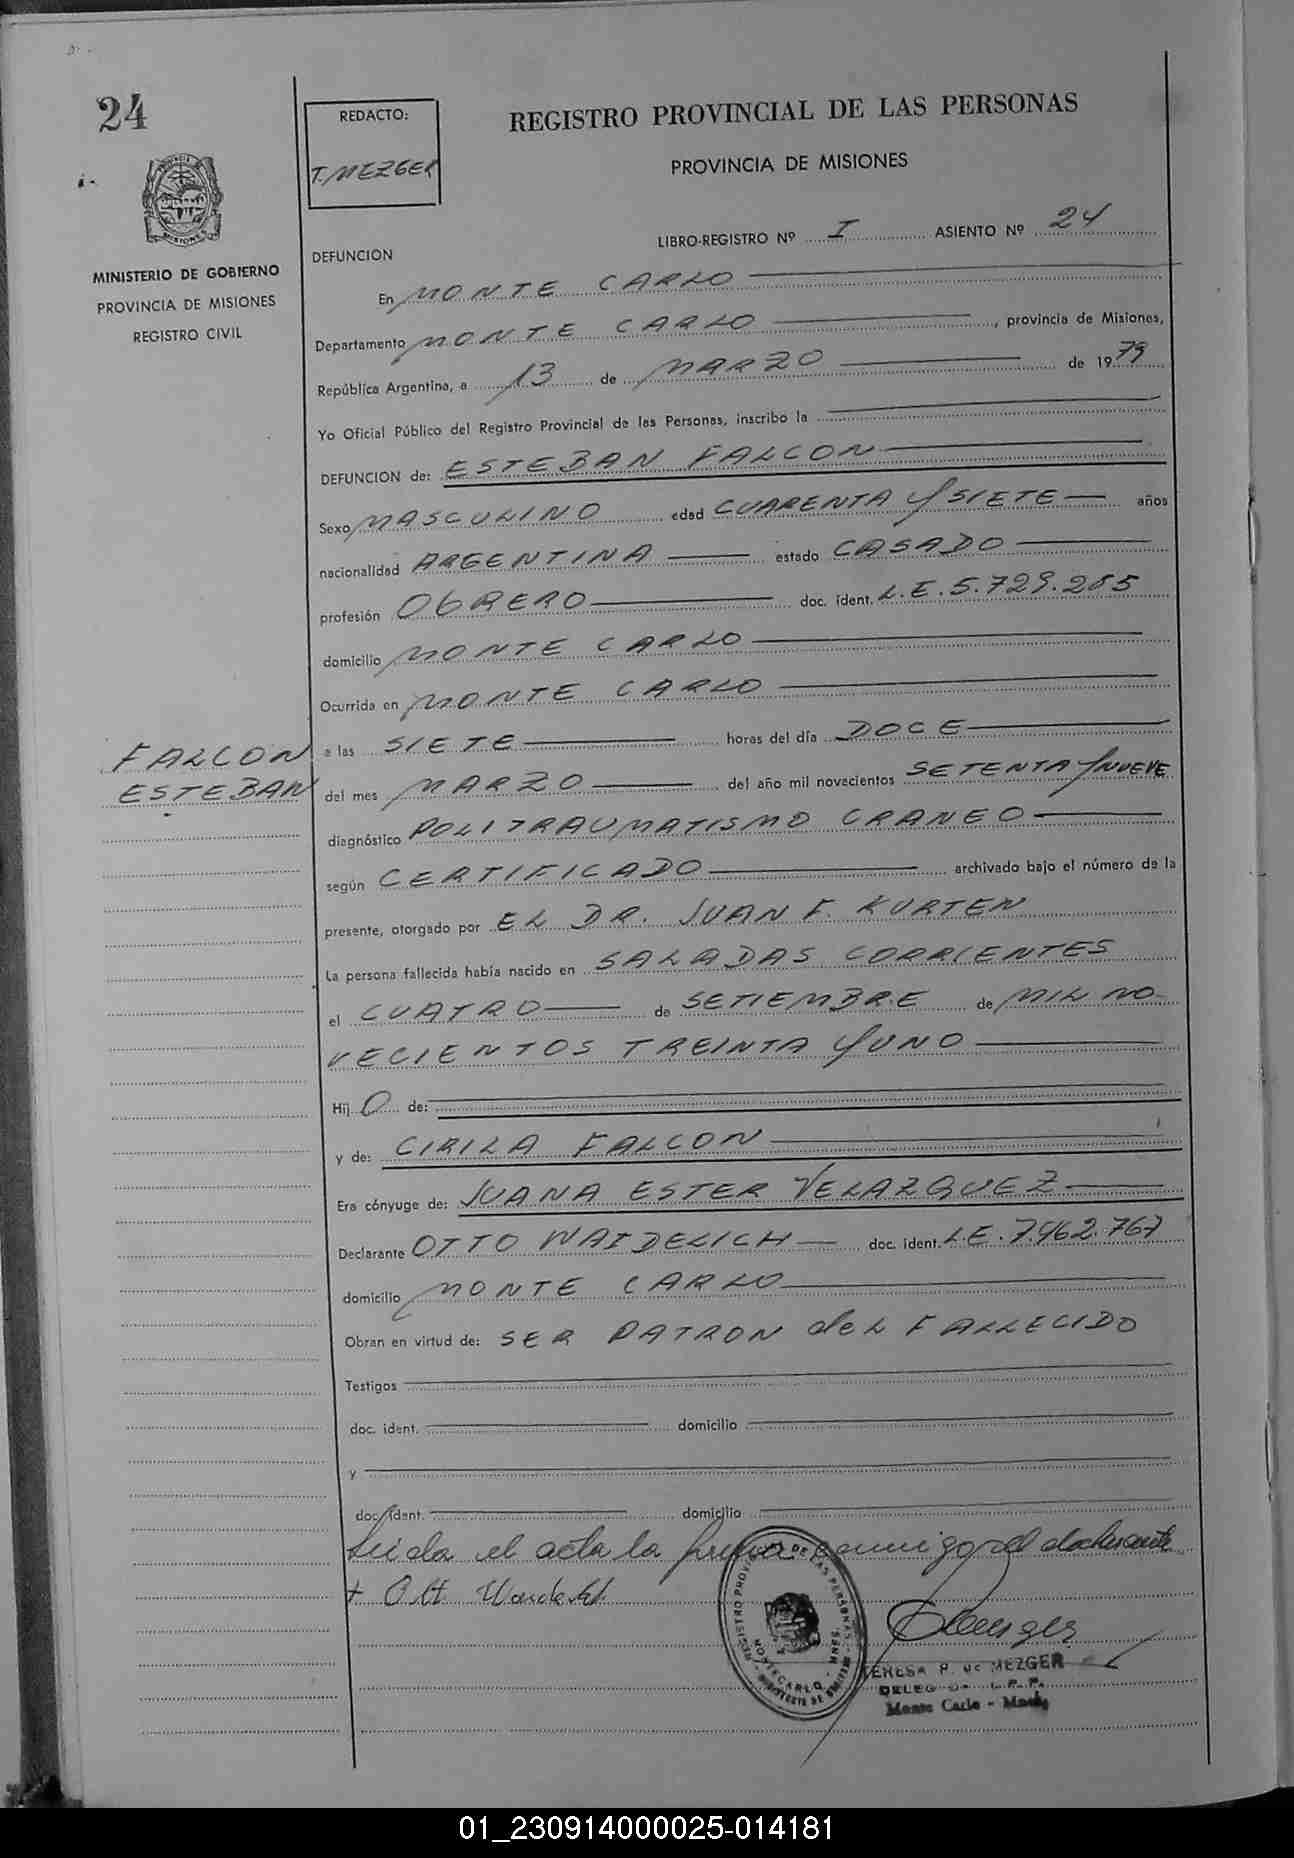 24
REDACTO:
T. MEZGER
REGISTRO PROVINCIAL DE LAS PERSONAS
PROVINCIA DE MISIONES
MINISTERIO DE GOBIERNO
PROVINCIA DE MISIONES
REGISTRO CIVIL
LIBRO-REGISTRO Nº I ASIENTO Nº 24
DEFUNCION
En MONTE CARLO
Departamento MONTE CARLO, provincia de Misiones,
República Argentina, a 13 de MARZO de 1979
Yo Oficial Público del Registro Provincial de las Personas, inscribo la
DEFUNCION de: ESTEBAN FALCON
Sexo MASCULINO edad CUARENTA Y SIETE años
nacionalidad ARGENTINA estado CASADO
profesión OBRERO doc. ident. L.E. 5.729.285
domicilio MONTE CARLO
Ocurrida en MONTE CARLO
FALCON
ESTEBAN
a las SIETE horas del día DOCE
del mes MARZO del año mil novecientos SETENTA Y NUEVE
diagnóstico POLITRAUMATISMO CRANEO
según CERTIFICADO archivado bajo el número de la
presente, otorgado por EL DR. JUAN F. KURTEN
La persona fallecida había nacido en SALADAS CORRIENTES
el CUATRO de SETIEMBRE de MIL NO
VECIENTOS TREINTA Y UNO
Hij O de:
y de: CIRILA FALCON
Era cónyuge de: JUANA ESTER VELAZQUEZ
Declarante OTTO WAIDELICH doc. ident. L.E. 7.462.767
domicilio MONTE CARLO
Obran en virtud de: SER PATRON deL FALLECIDO
Testigos
doc. ident. domicilio
y
doc. ident. domicilio
Leida el acta la firma conmigo el declarante
REGISTRO PROVINCIAL DE LAS PERSONAS
MONTECARLO - MNES.
TERESA P. de MEZGER
Monte Carlo - Mnes.
01_230914000025-014181